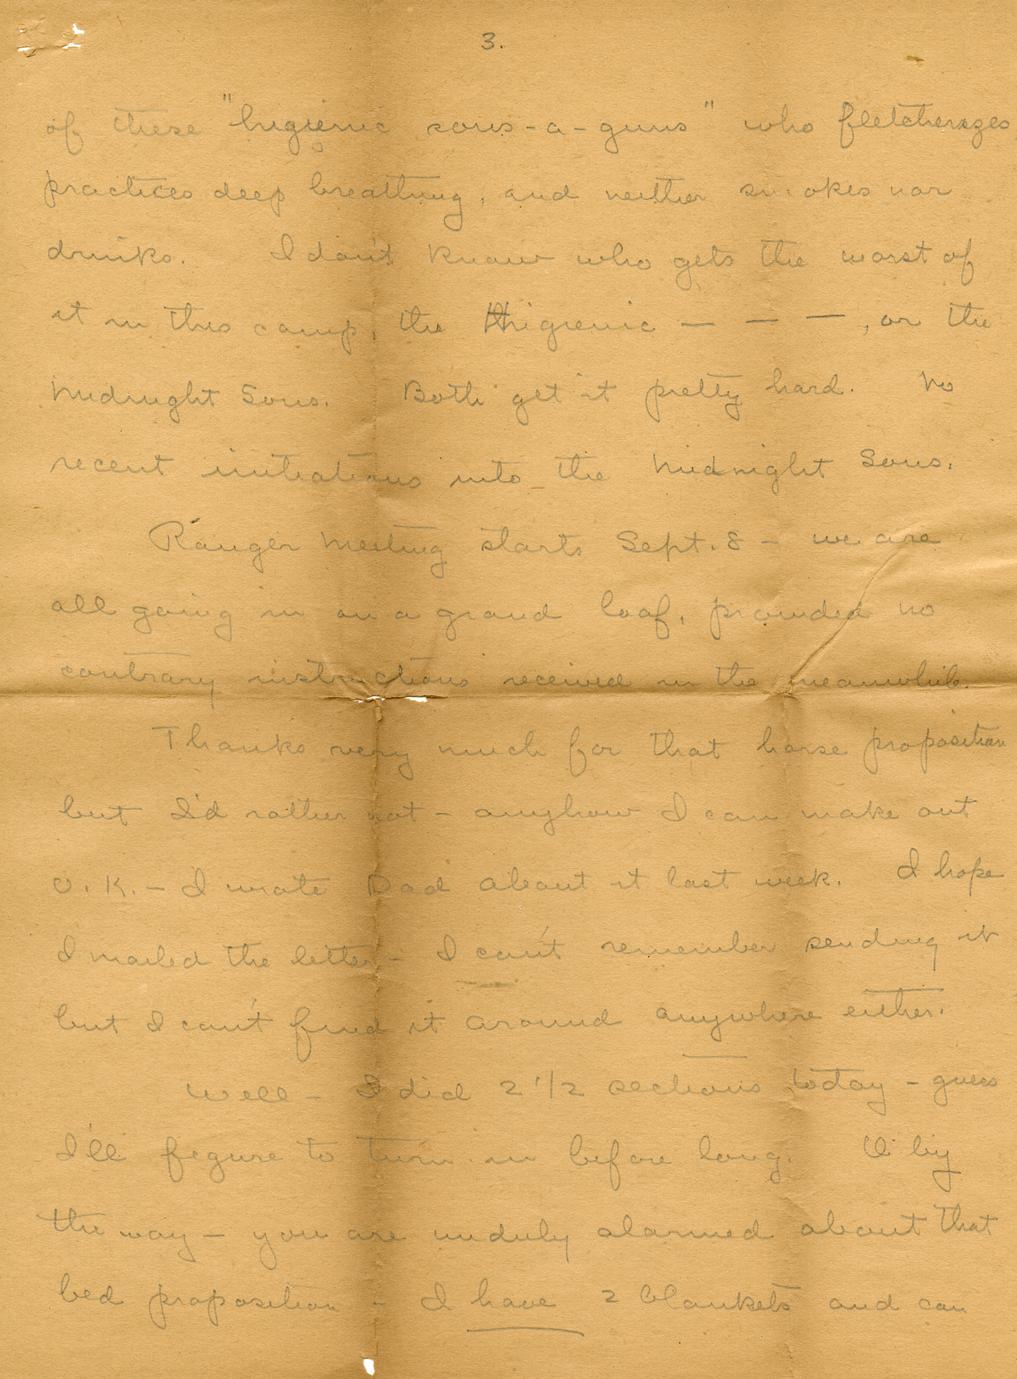 3.
of these "higienic sons-a-guns" who fletcherizes
practices deep breathing, and neither smokes nor
drinks. I don't know who gets the worst of
it in this camp, the Higienic — — —, or the
Midnight Sons. Both get it pretty hard. No
recent initiations into the Midnight Sons.
Ranger Meeting starts Sept. 8 - we are
all going in on a grand loaf, provided no
contrary instructions received in the meanwhile.
Thanks very much for that horse proposition
but I'd rather not - anyhow I can make out
O.K. - I wrote Dad about it last week. I hope
I mailed the letter - I can't remember sending it
but I can't find it around anywhere either.
Well - I did 2 1/2 sections today - guess
I'll figure to turn in before long. O by
the way - you are unduly alarmed about that
bed proposition - I have 2 blankets and can